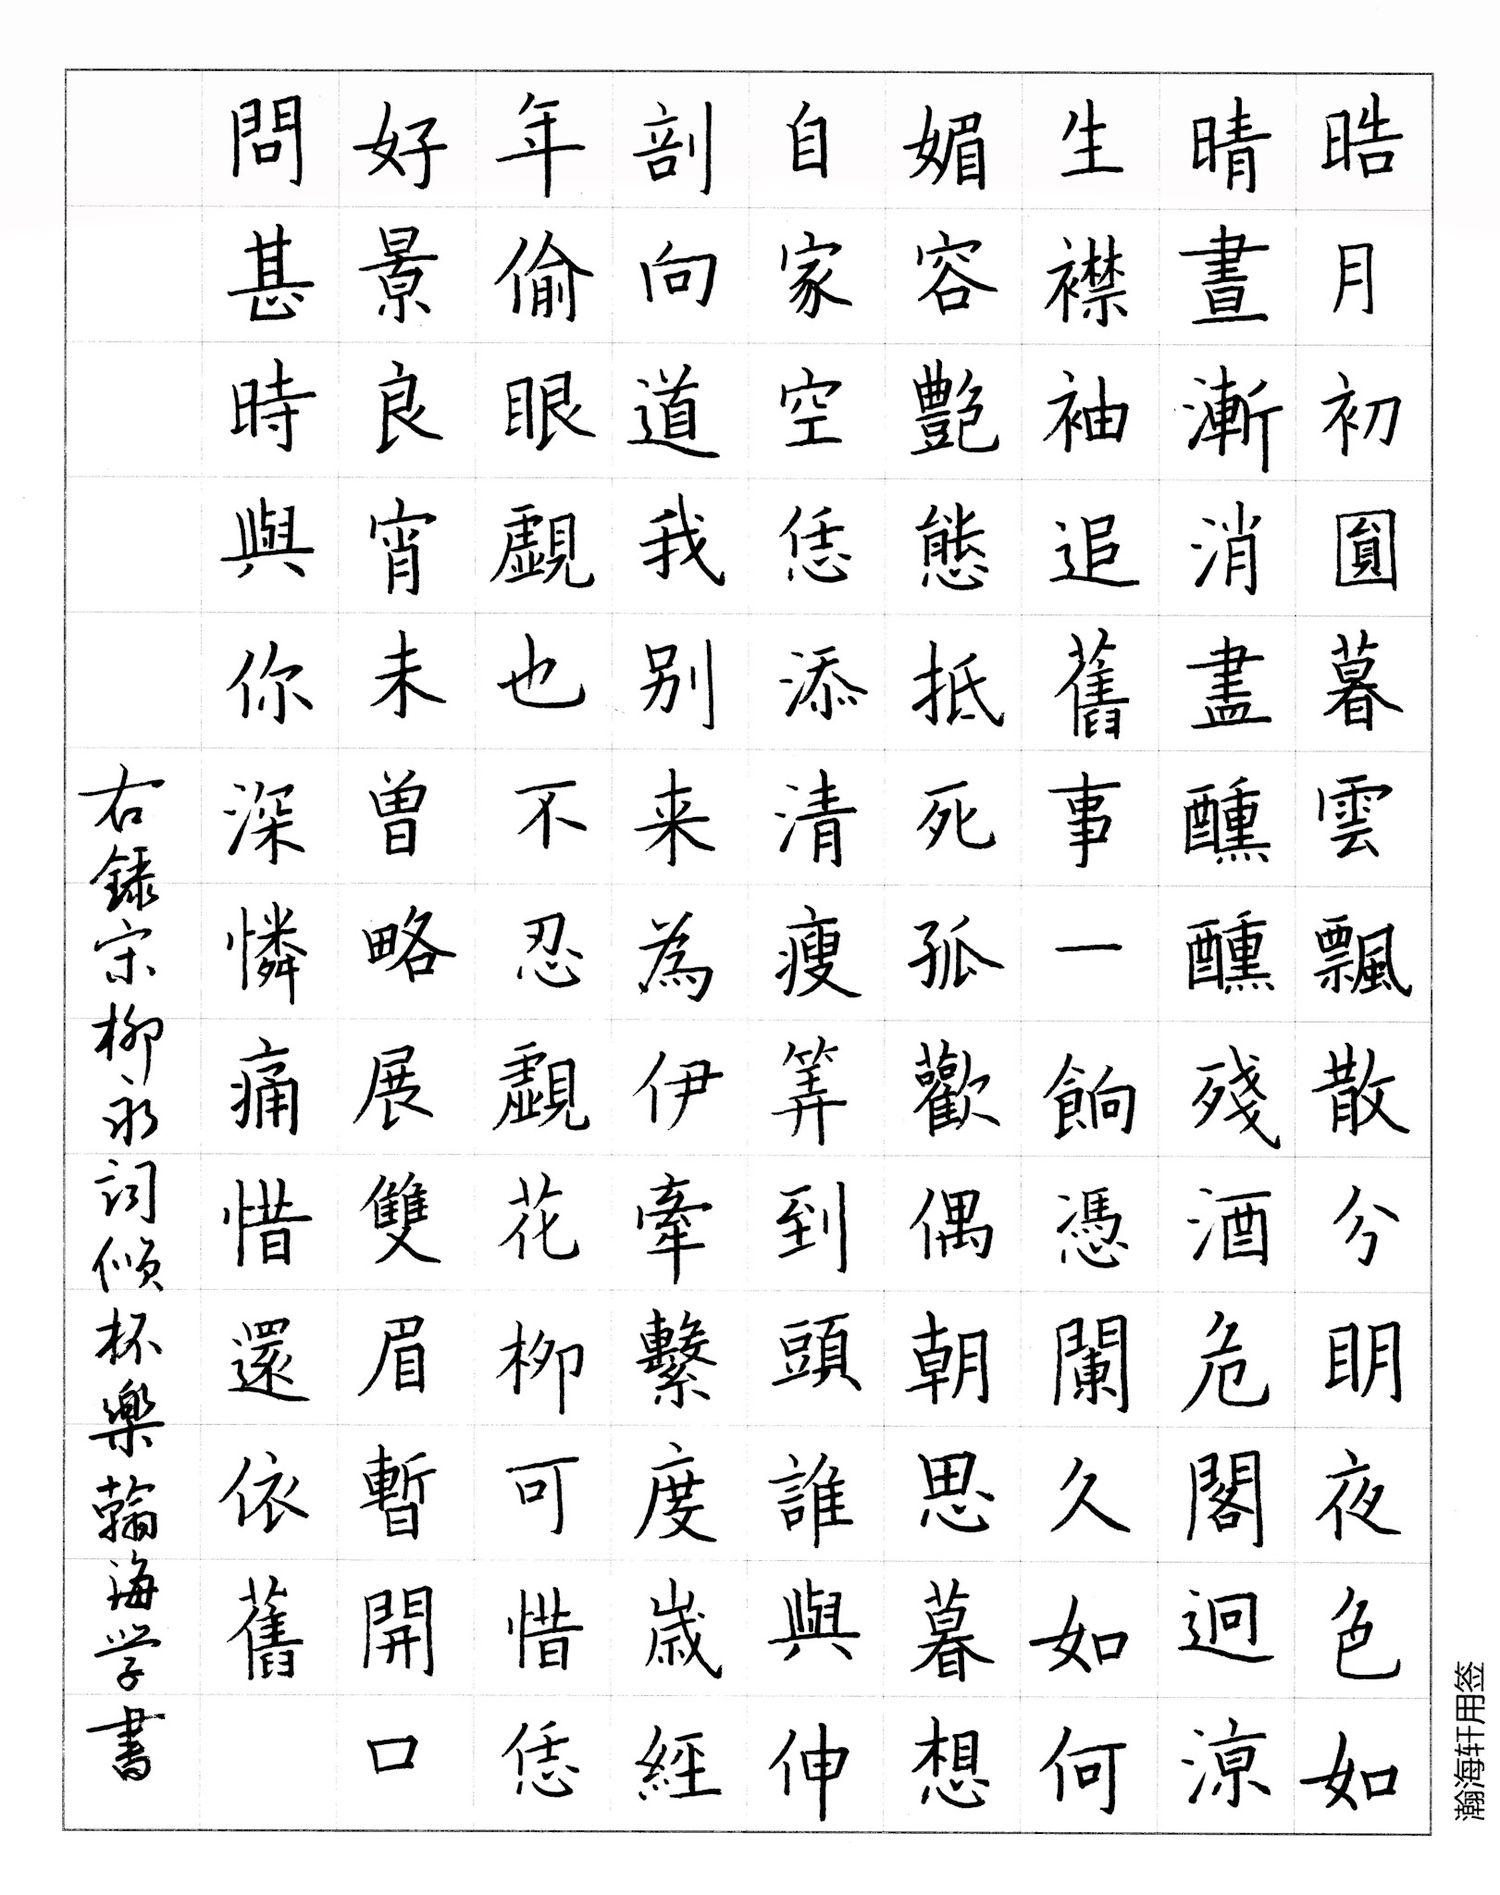 晧月初圓暮雲飄散兮明夜色如
晴晝漸消盡醺醺殘酒危閣迥涼
生襟袖追舊事一餉憑闌久如何
媚容艷態抵死孤歡偶朝思暮想
自家空恁添清瘦筭到頭誰與伸
剖向道我别来為伊牽繫度歲經
年偷眼覷也不忍覷花柳可惜恁
好景良宵未曽略展雙眉暫開口
問甚時與你深憐痛惜還依舊
右録宋柳永詞倾杯樂翰海学書
瀚海轩用签